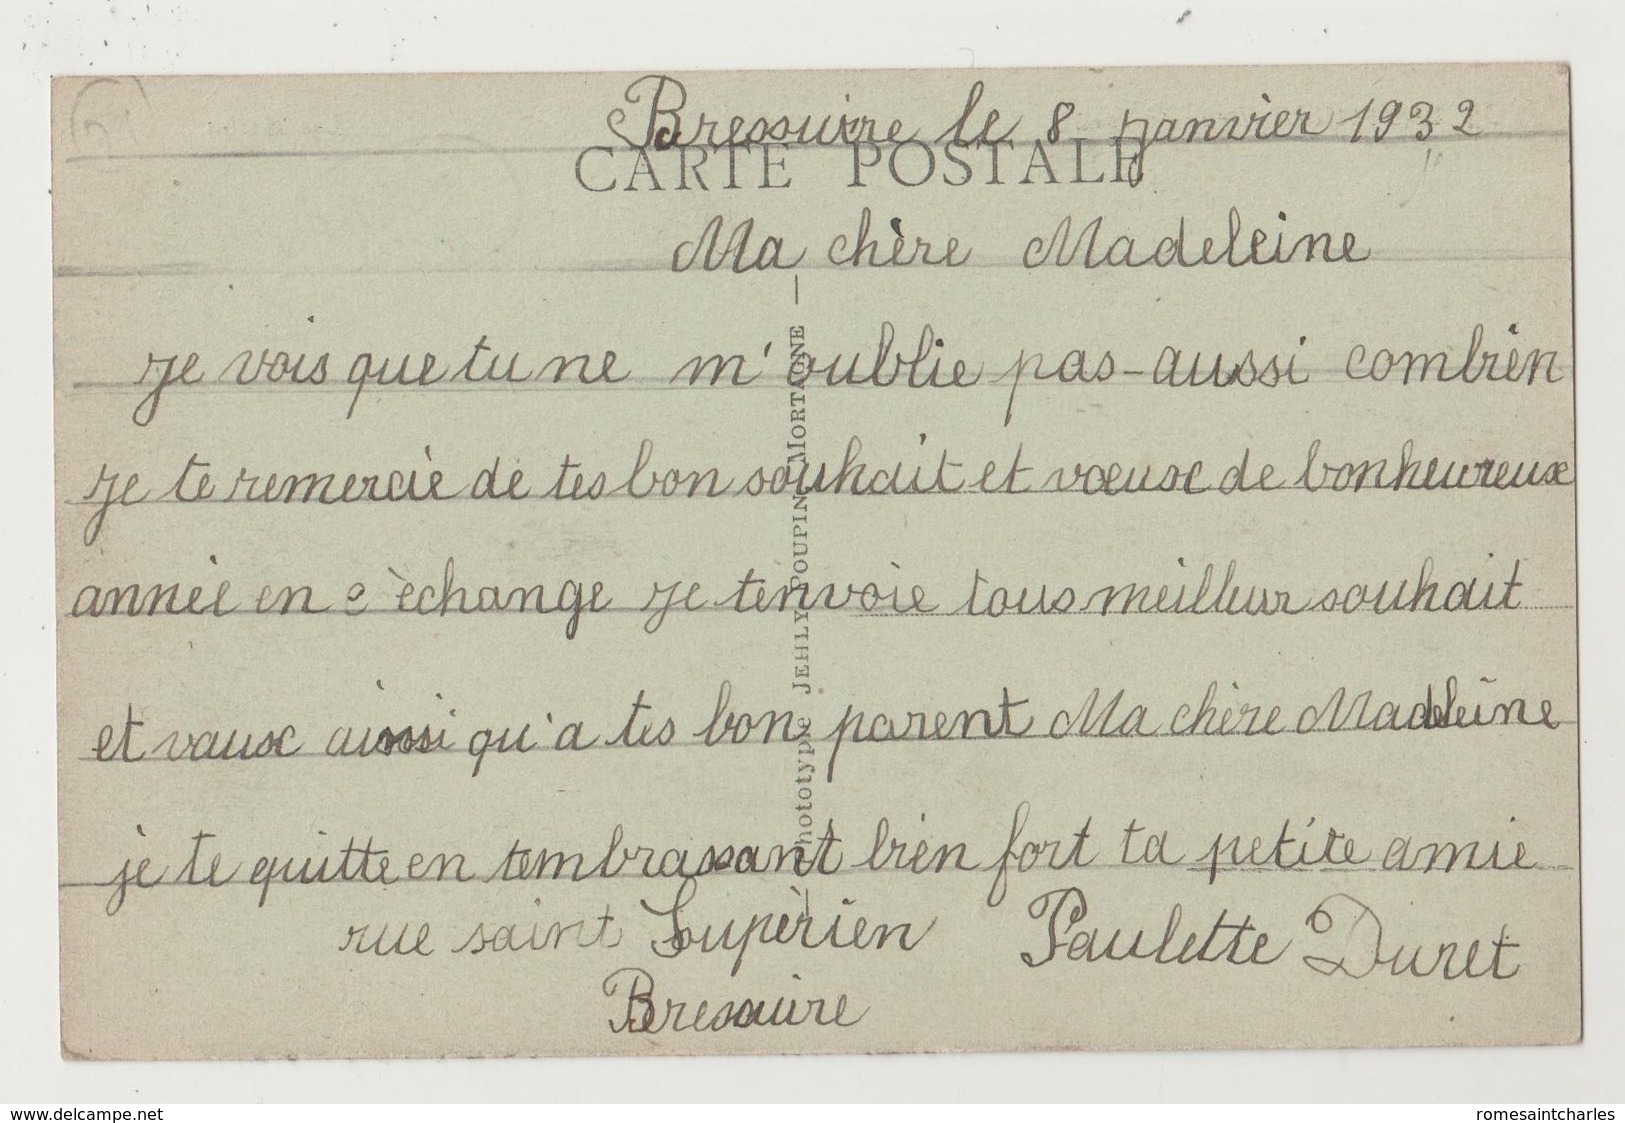 Bressuire le 8 janvier 1932
CARTE POSTALE
Ma chère Madeleine
je vois que tu ne m'oublie pas aussi combien
je te remercie de tes bon souhait et vœux de bonheureuse
année en échange je tenvoie tous meilleur souhait
et vaux aussi qu'a tes bon parent Ma chère Madeleine
je te quitte en tembrassant bien fort ta petite amie
rue saint Lupèrien Paulette Duret
Bressuire
Phototype JEHLY-POUPIN, MORTAGNE
www.delcampe.net
romesaintcharles